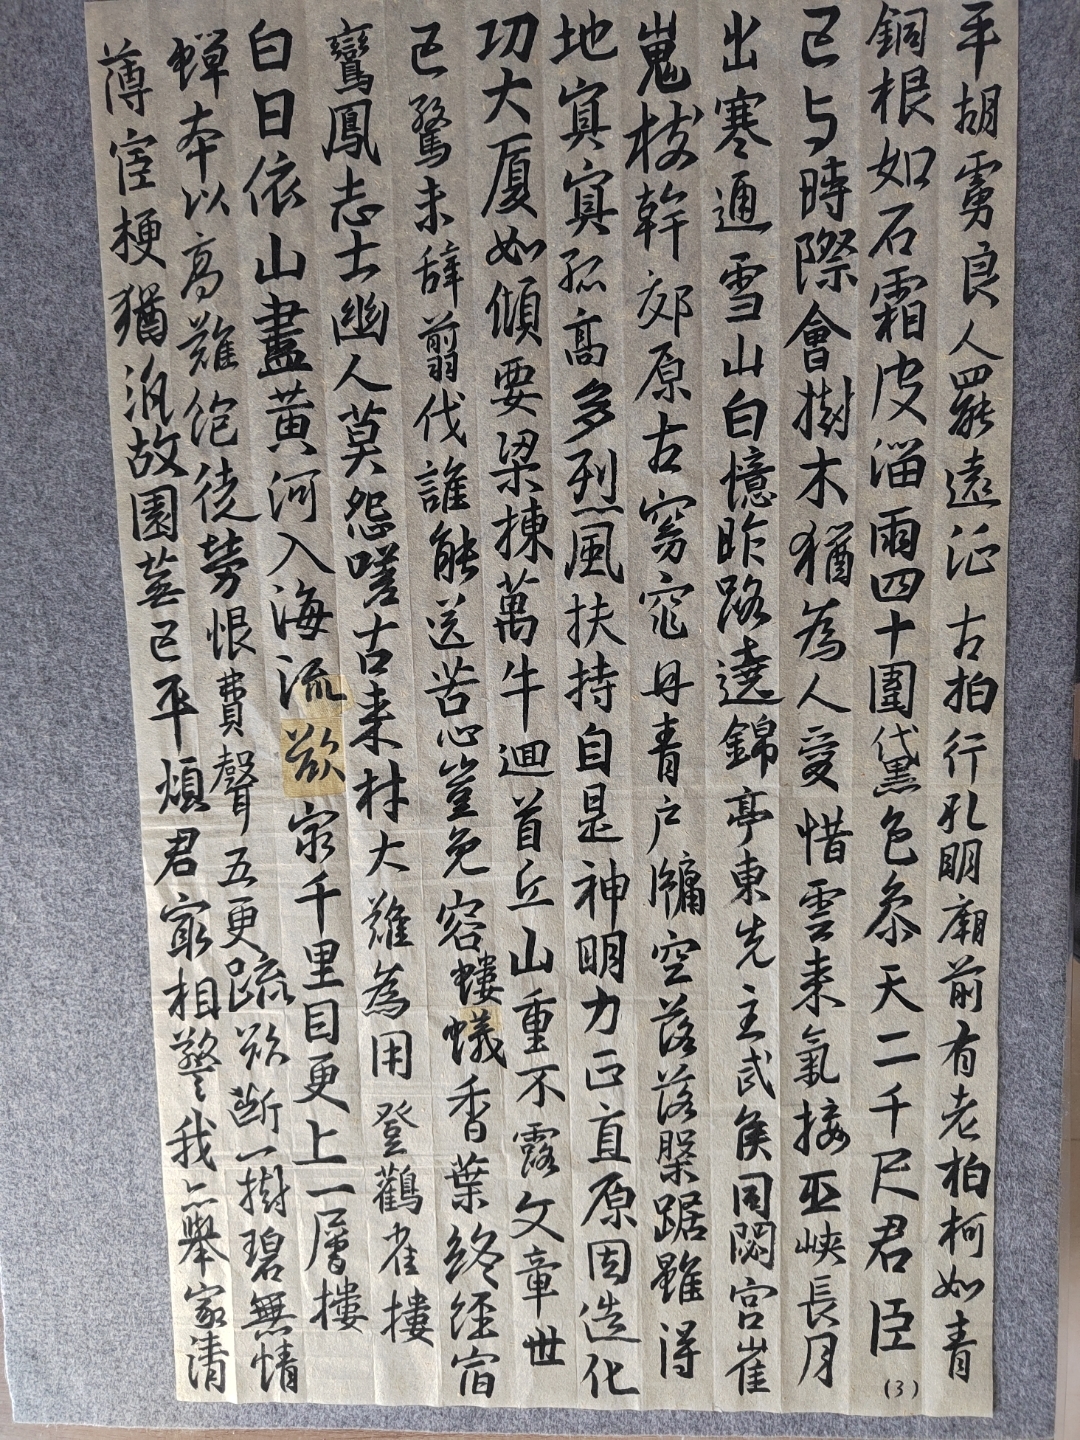 平胡虜良人罷遠征古柏行孔明廟前有老柏柯如青
銅根如石霜皮溜雨四十圍黛色參天二千尺君臣
已与時際會樹木猶為人愛惜雲來氣接巫峽長月
出寒通雪山白憶昨路遶錦亭東先主武侯同閟宮崔
嵬枝幹郊原古窈窕丹青戶牖空落落落槃踞雖得
地冥冥孤高多烈風扶持自是神明力正直原因造化
功大厦如傾要梁棟萬牛迴首丘山重不露文章世
已驚未辭翦伐誰能送苦心豈免容螻蟻香葉終經宿
鸞鳳志士幽人莫怨嗟古來材大難為用登鸛雀樓
白日依山盡黃河入海流欲窮千里目更上一層樓
蟬本以高難飽徒勞恨費聲五更疏欲斷一樹碧無情
薄宦梗猶汎故園蕪已平煩君最相警我亦舉家清
(3)